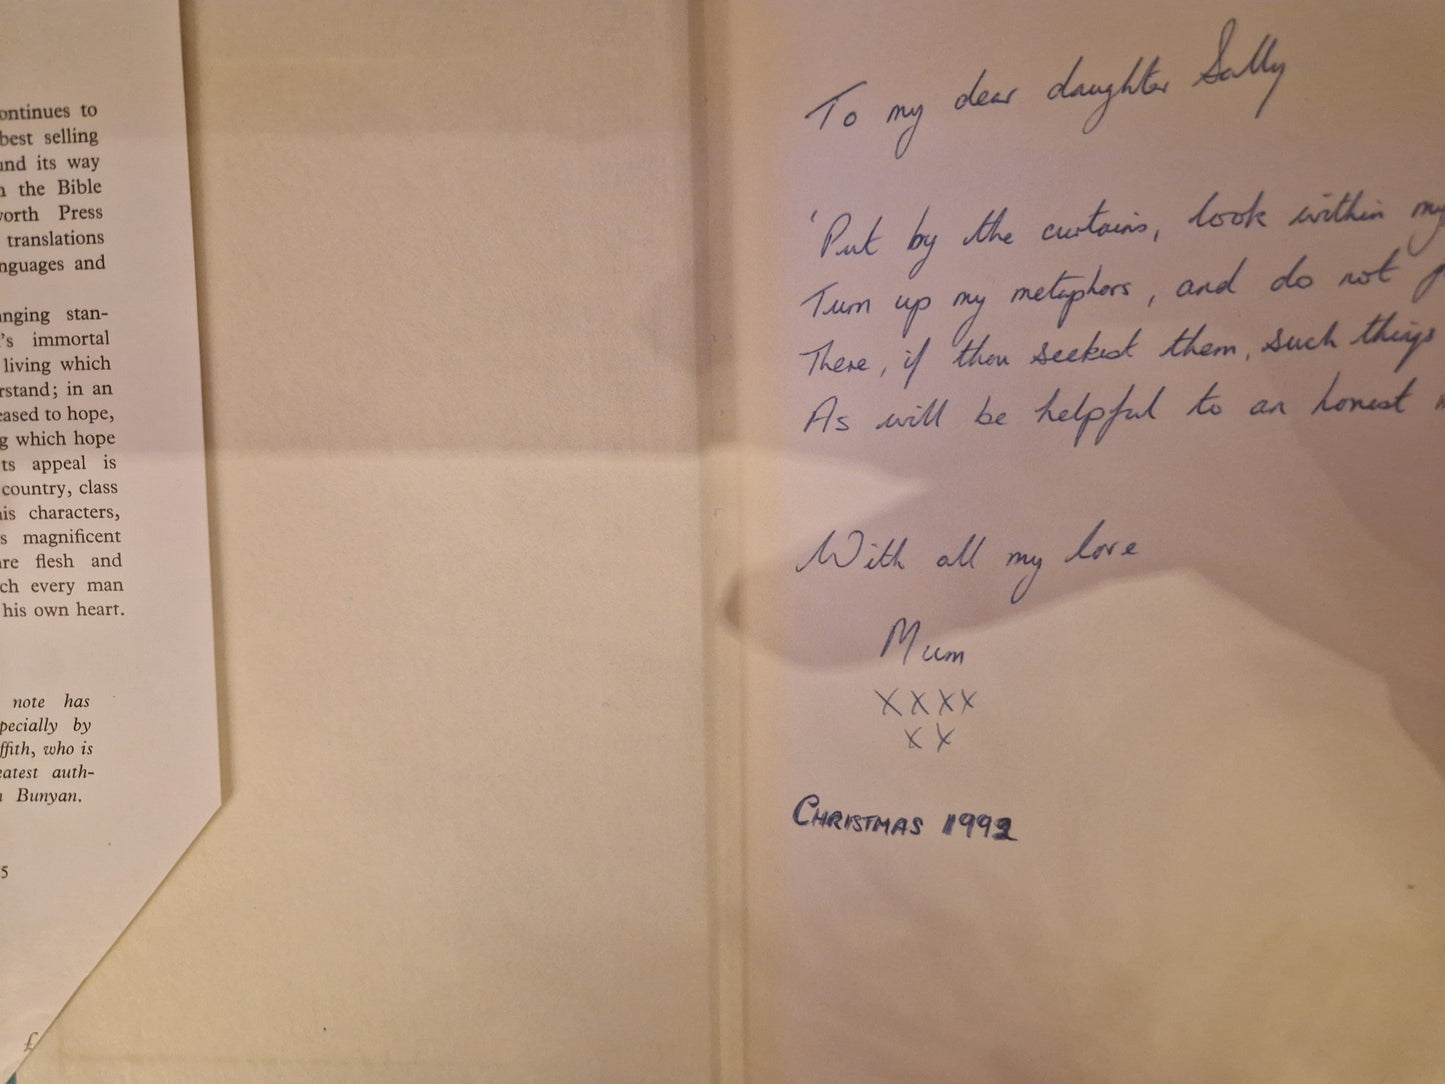 ontinues to
best selling
und its way
n the Bible
worth Press
translations
nguages and
anging stan-
's immortal
living which
rstand; in an
eased to hope,
g which hope
ts appeal is
country, class
his characters,
s magnificent
are flesh and
ch every man
his own heart.
note has
pecially by
ffith, who is
eatest auth-
n Bunyan.
5
£
To my dear daughter Sally
'Put by the curtains, look within my
Turn up my metaphors, and do not
There, if thou seekest them, such things
As will be helpful to an honest
With all my love
Mum
XXXX
XX
CHRISTMAS 1992